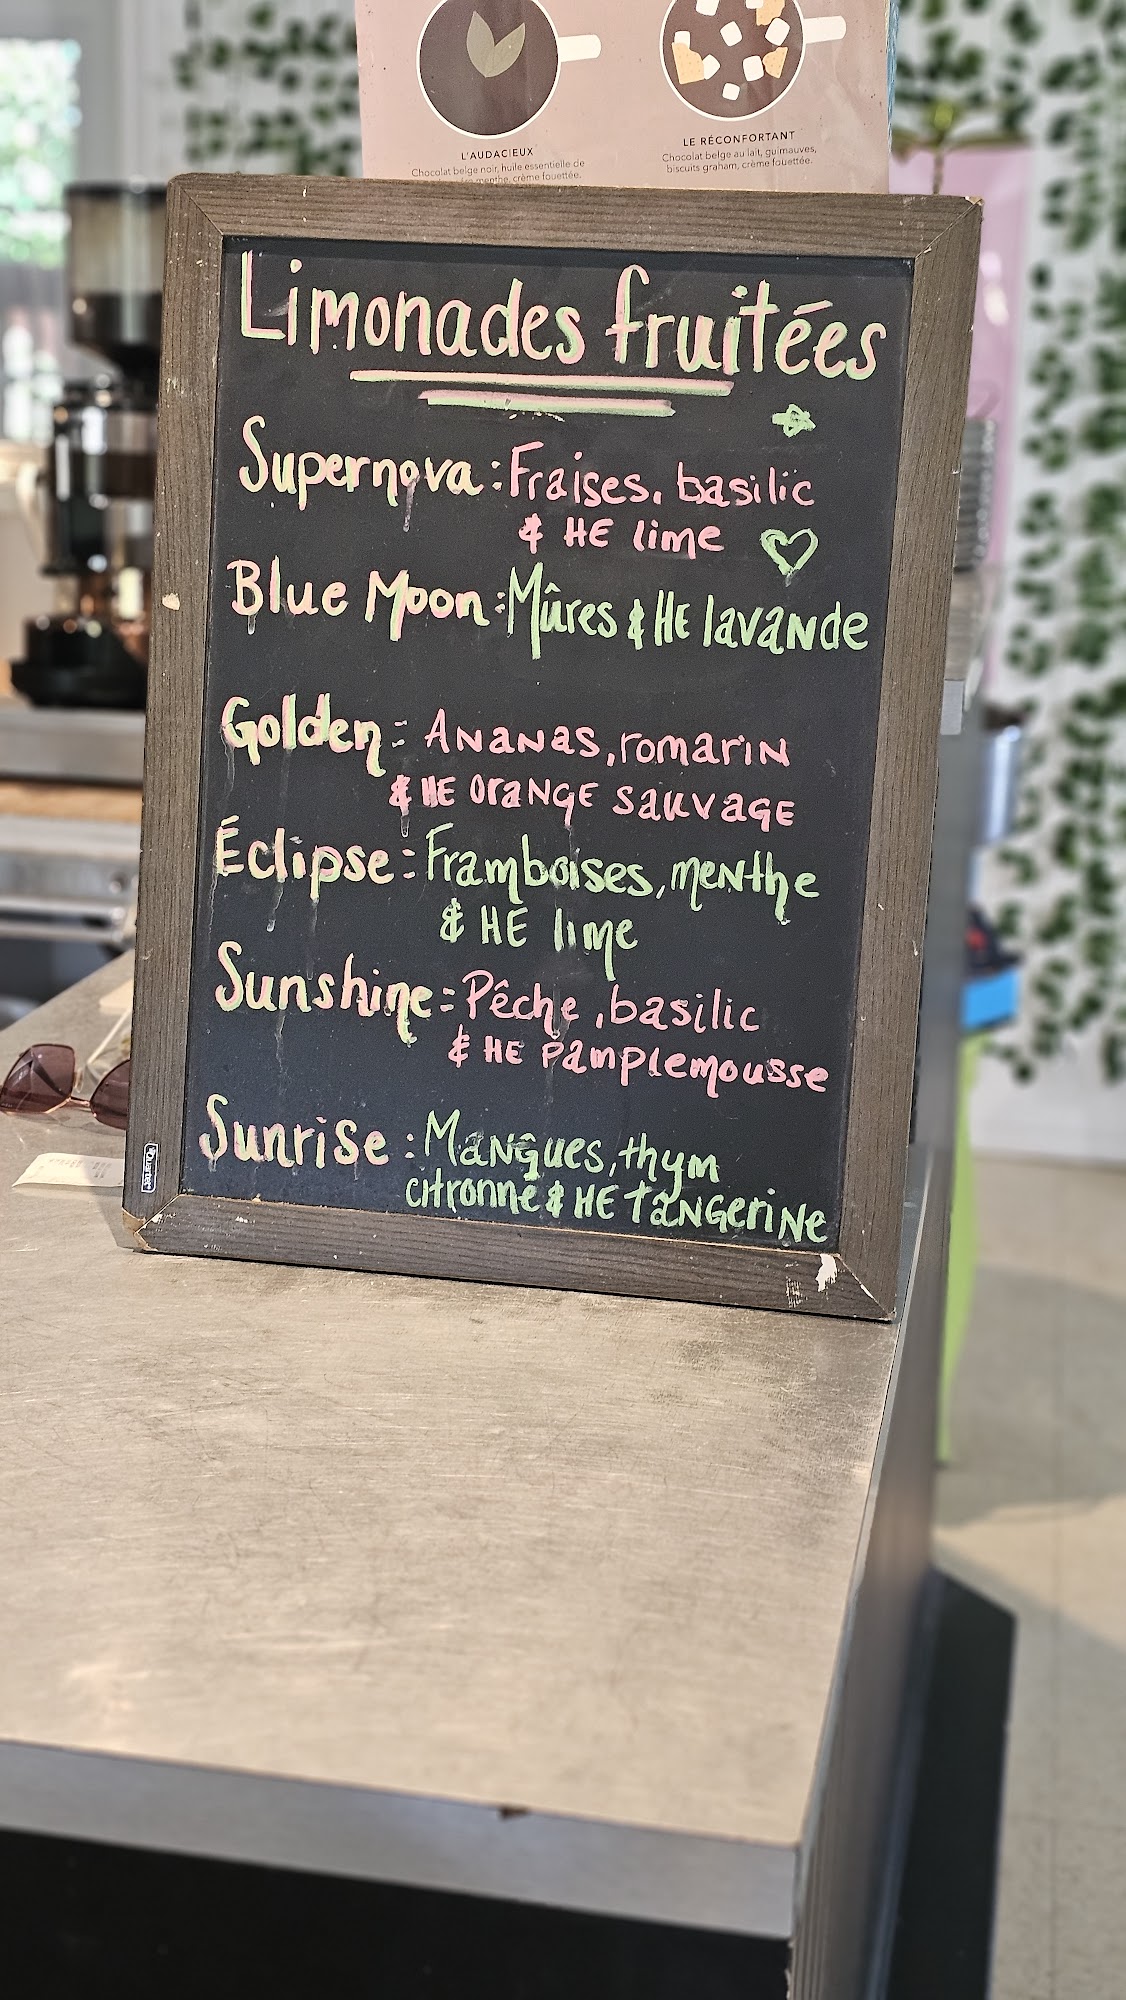 L'AUDACIEUX
Chocolat belge noir, huile essentielle de
menthe, crème fouettée.
LE RÉCONFORTANT
Chocolat belge au lait, guimauves,
biscuits graham, crème fouettée.
Limonades fruitées
Supernova : Fraises, basilic
& HE lime
Blue Moon : Mûres & HE lavande
Golden : Ananas, romarin
& HE orange sauvage
Éclipse : Framboises, menthe
& HE lime
Sunshine : Pêche, basilic
& HE pamplemousse
Sunrise : Mangues, thym
citronné & HE tangerine
Quartet